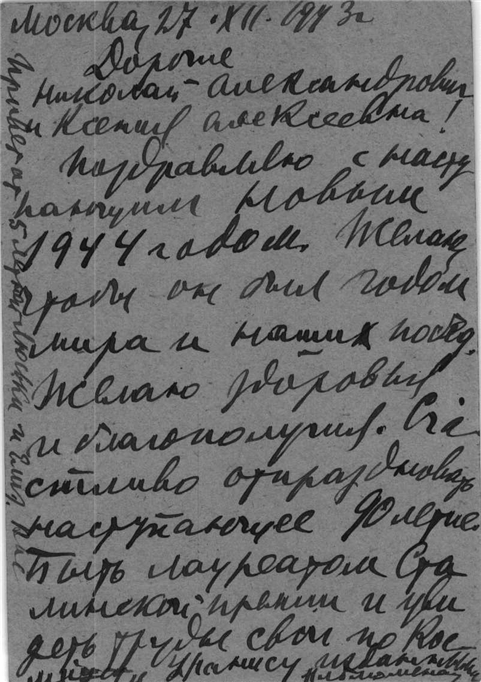 Москва, 27.XII.1943 г
Дорогие
Николай Александрович
и Ксения Алексеевна!
Поздравляю с насту
пающим новым
1944 годом. Желаю
чтобы он был годом
мира и наших побед.
Желаю здоровья
и благополучия. Сча
стливо отпраздновать
наступающее 90 летие.
Быть лауреатом Ста
линской премии и уви
деть труды свои по Кос
Привет от